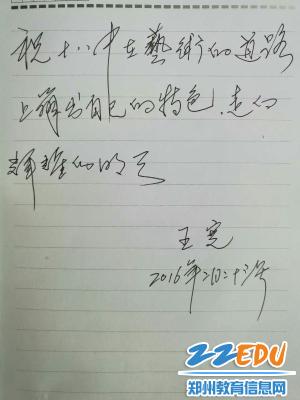 祝十八中在藝術的道路
上 出自己的特色.走向
辉煌的明天
王宽
2016年
22EDU
郑州教育信息网